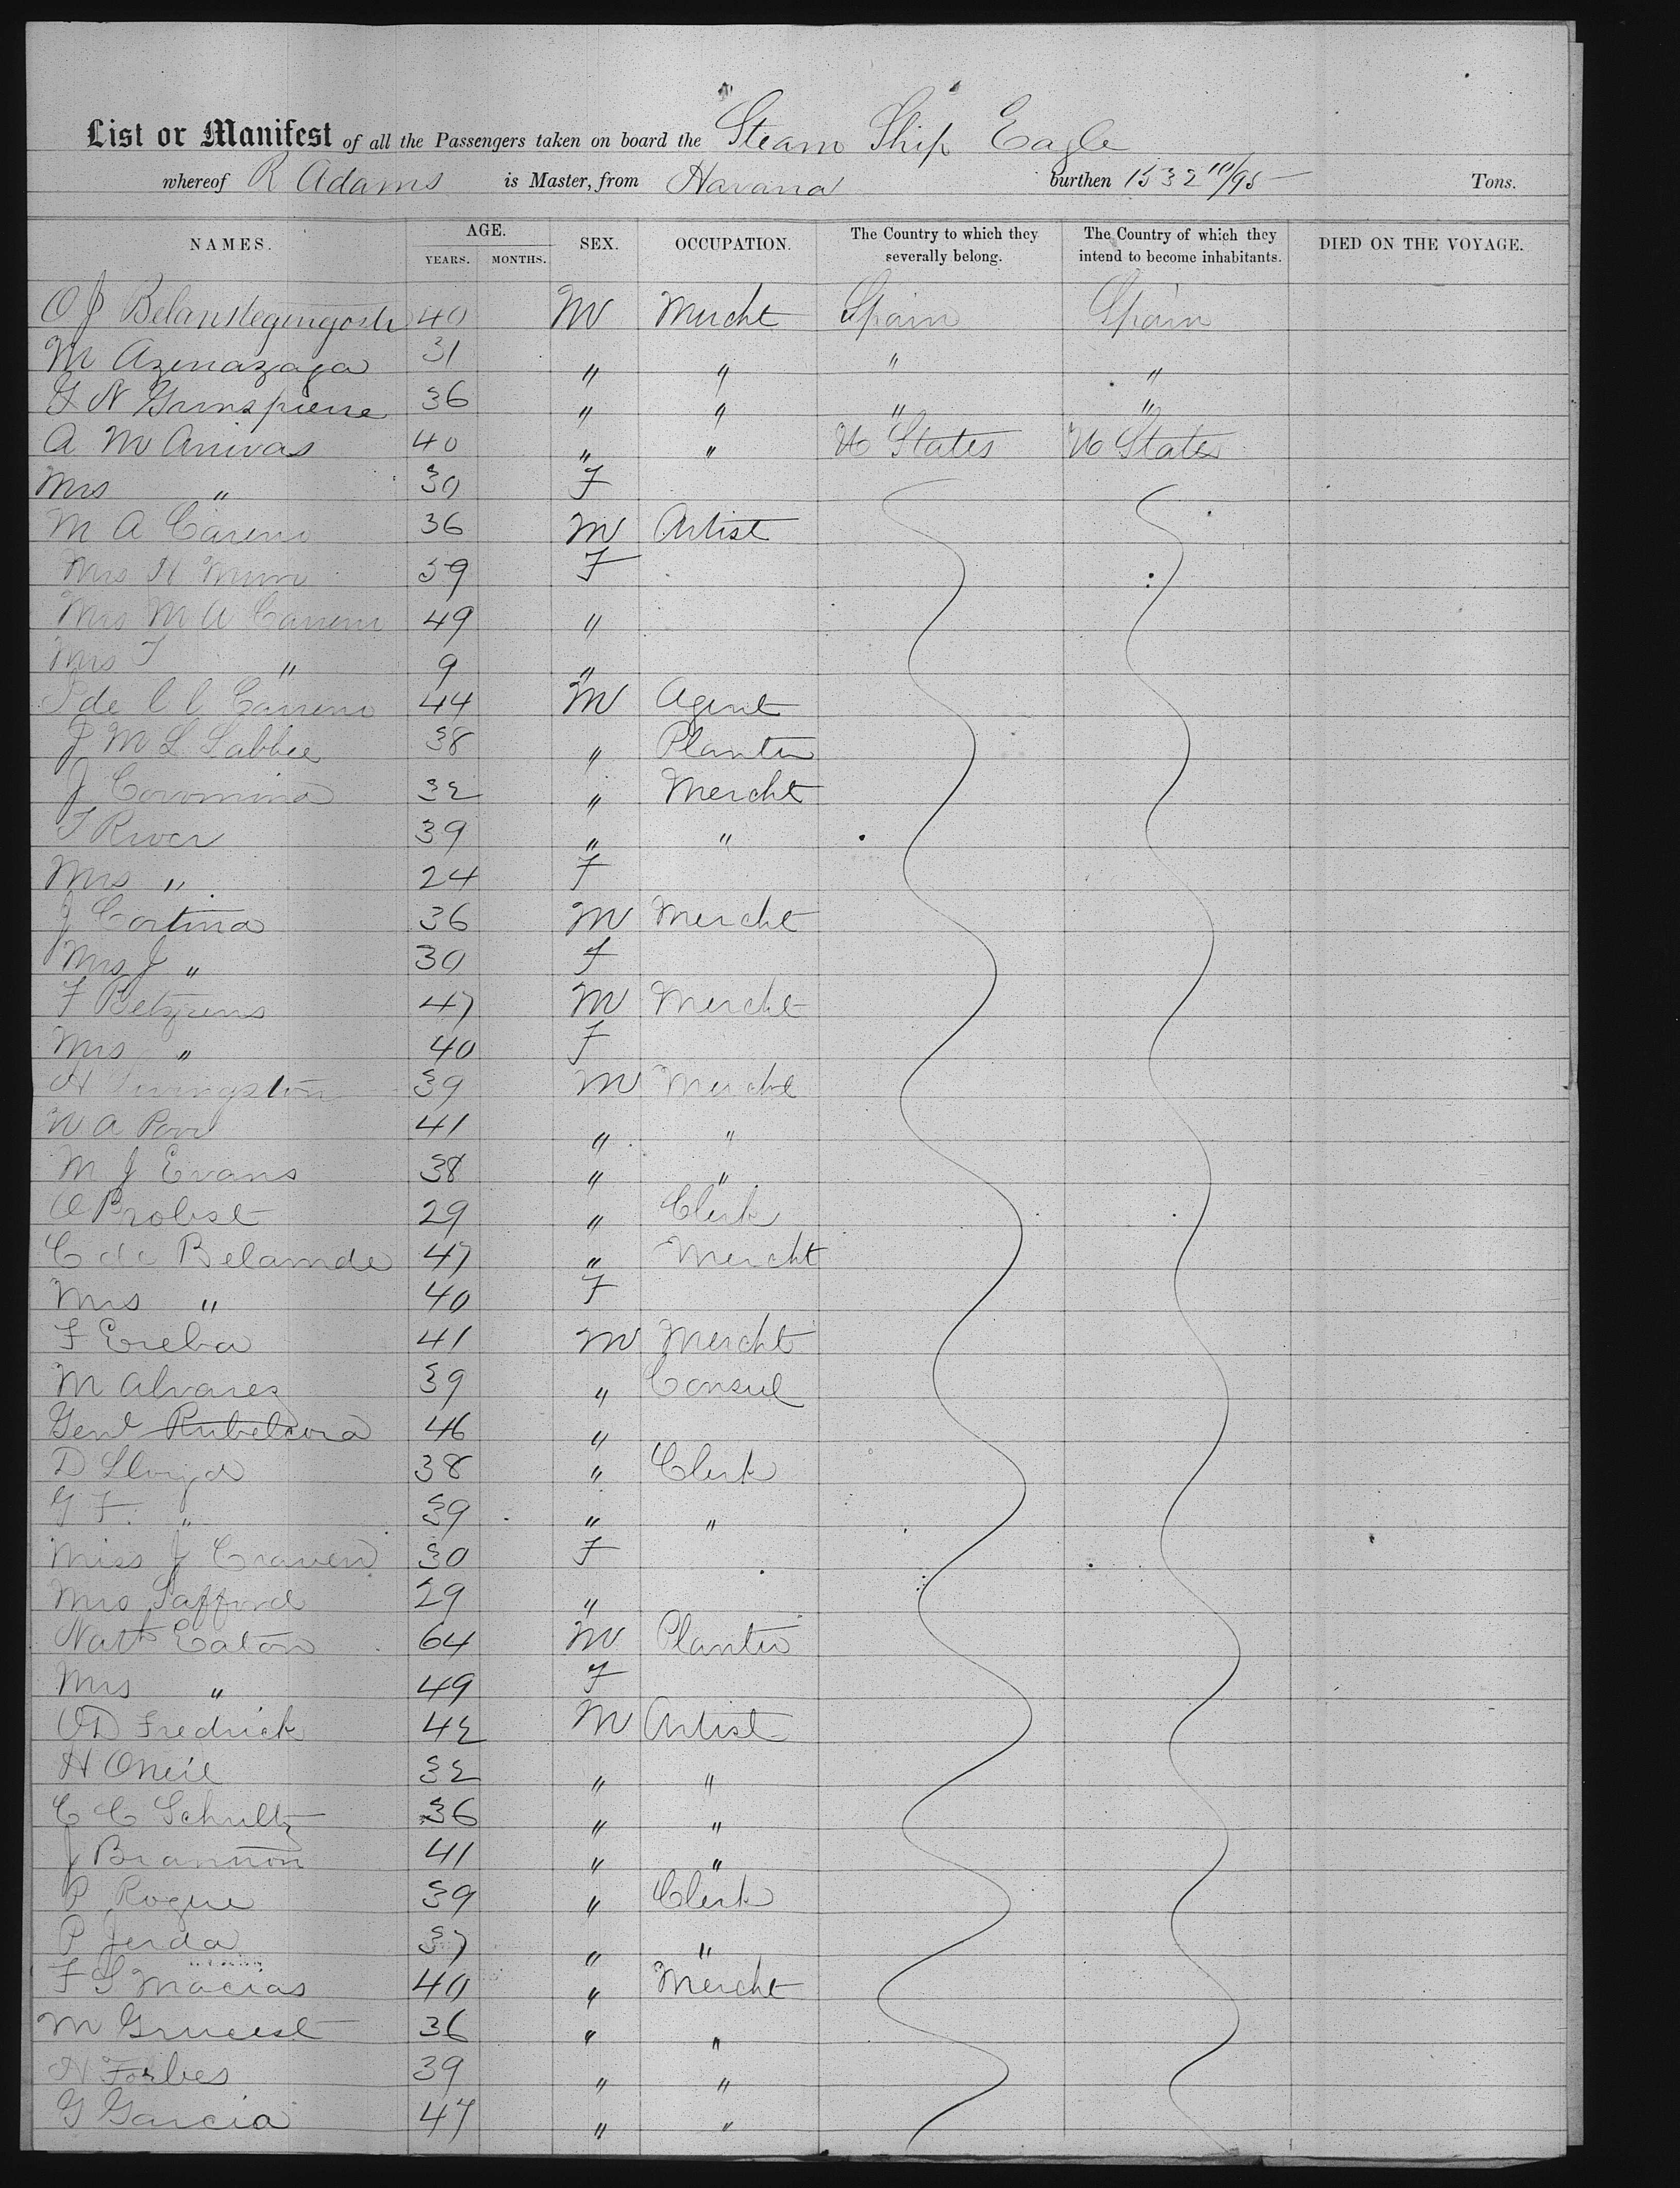 List or Manifest of all the Passengers taken on board the Steam Ship Eagle
whereof R Adams is Master, from Havana burthen 1532 10/95 Tons.
NAMES. AGE. YEARS. MONTHS. SEX. OCCUPATION. The Country to which they severally belong. The Country of which they intend to become inhabitants. DIED ON THE VOYAGE.
O J 40 M Mercht Spain Spain
M Azenazaga 31 " " " "
36 " " " "
A M Arivas 40 " " U States U States
Mrs " 30 F
M A Careno 36 M Artist
Mrs 39 F
Mrs M A Carreno 49 "
Mrs T " 9 "
de C C Carreno 44 M Agent
J M L Labbee 38 " Planter
J Coromina 32 " Mercht
T River 39 " "
Mrs " 24 F
J Cortina 36 M Mercht
Mrs J " 30 F
F 47 M Mercht
Mrs " 40 F
H Livingston 39 M Mercht
W A Poor 41 " "
M J Evans 38 " "
O Probst 29 " Clerk
C de Belamde 47 " Mercht
Mrs " 40 F
F Ereba 41 M Mercht
M Alvarez 39 " Consul
Genl Rubelcora 46 "
D Lloyd 38 " Clerk
G F. " 39 " "
Miss J Craven 30 F
Mrs Safford 29 "
Nath Eaton 64 M Planter
Mrs " 49 F
O D Fredrick 42 M Artist
H ONeil 32 " "
C C Schultz 36 " "
J Brannon 41 " "
P Rogue 39 " Clerk
P Jerda 37 " "
F S Macias 40 " Mercht
M 36 " "
H Forbes 39 " "
G Garcia 47 " "